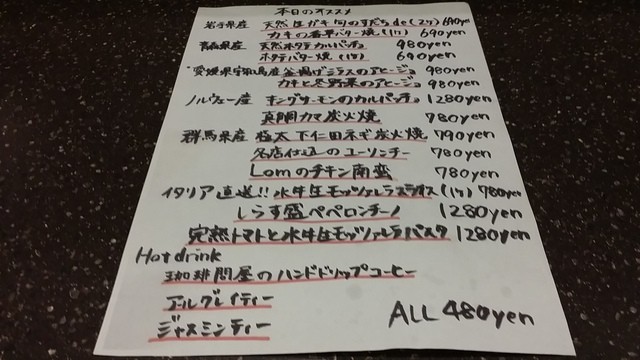 本日のオススメ
岩手県産 天然生ガキ 旬のすだち de (2ケ) 690yen
カキの香草バター焼 (1ケ) 690yen
青森県産 天然ホタテカルパッチョ 980yen
ホタテバター焼 (1ケ) 690yen
愛媛県宇和島産 釜揚げシラスのアヒージョ 980yen
カキと冬野菜のアヒージョ 980yen
ノルウェー産 キングサーモンのカルパッチョ 1280yen
真鯛カマ炭火焼 780yen
群馬県産 極太下仁田ネギ炭火焼 790yen
名店仕込のユーリンチー 780yen
Lomのチキン南蛮 780yen
イタリア直送!! 水牛生モッツァレラスライス (1ケ) 780yen
しらす盛ペペロンチーノ 1280yen
完熟トマトと水牛生モッツァレラパスタ 1280yen
Hot drink
珈琲問屋のハンドドリップコーヒー
アールグレイティー
ジャスミンティー
ALL 480yen